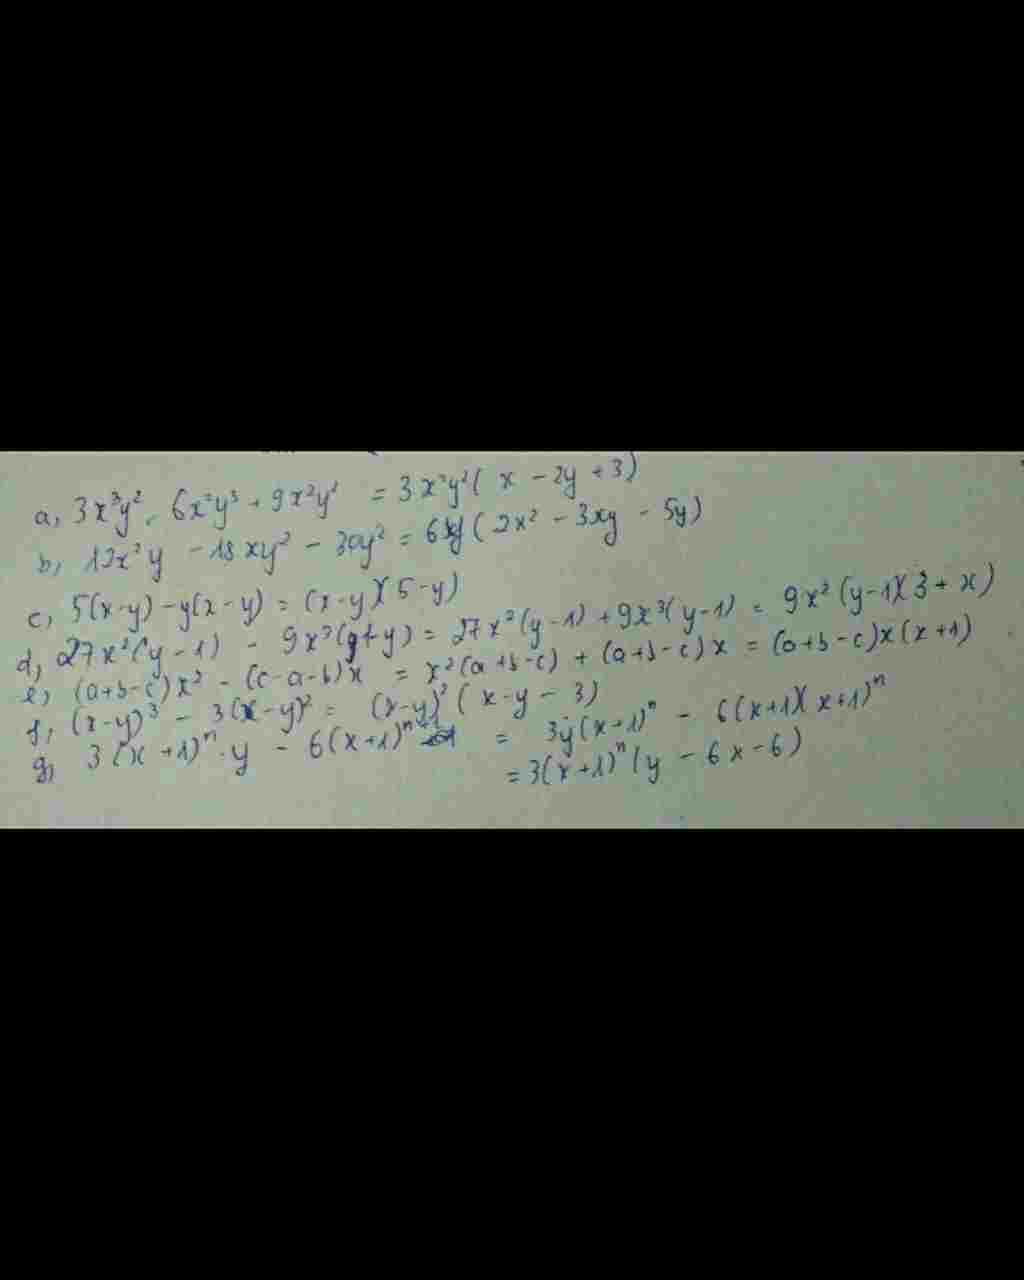 a, 3x³y² - 6x²y³ + 9x²y² = 3x²y²( x - 2y + 3)
b, 12x²y - 18xy² - 30y² = 6y( 2x² - 3xy - 5y)
c, 5(x-y) - y(x-y) = (x-y)(5-y)
d, 27x²(y-1) - 9x³(1-y) = 27x²(y-1) + 9x³(y-1) = 9x²(y-1)(3+x)
e, (a+b-c)x² - (c-a-b)x = x²(a+b-c) + (a+b-c)x = (a+b-c)x(x+1)
f, (x-y)³ - 3(x-y)² = (x-y)²( x-y - 3)
g, 3(x+1)ⁿ.y - 6(x+1)ⁿ⁺¹ = 3y(x+1)ⁿ - 6(x+1)(x+1)ⁿ
= 3(x+1)ⁿ(y - 6x - 6)